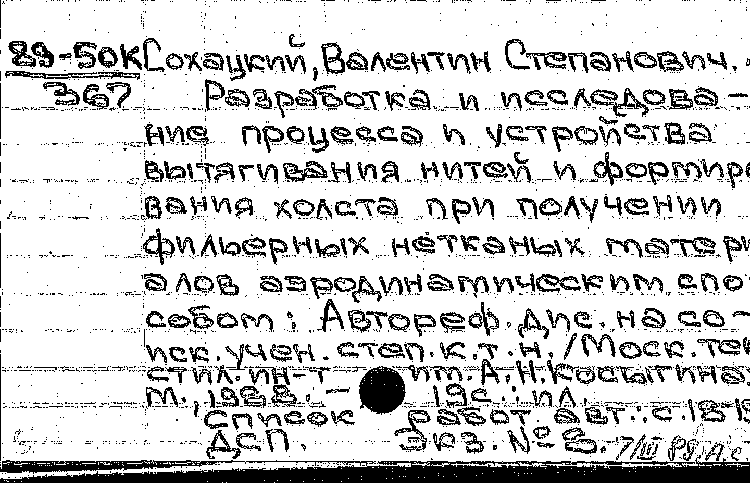 89-50К Сохацкий, Валентин Степанович.
367 Разработка и исследова-
ние процесса и устройства
вытягивания нитей и формиро
вания холста при получении
фильерных нетканых матери
алов аэродинамическим спо-
собом: Автореф. дис. на со-
иск. учен. степ. к. т. н. / Моск. тек
стил. ин-т им. А. Н. Косыгина.
М., 1988. - 19с.: ил.
Список работ авт.: с. 18-19
ДСП. Экз. № 8. 7/III 89. А.с.